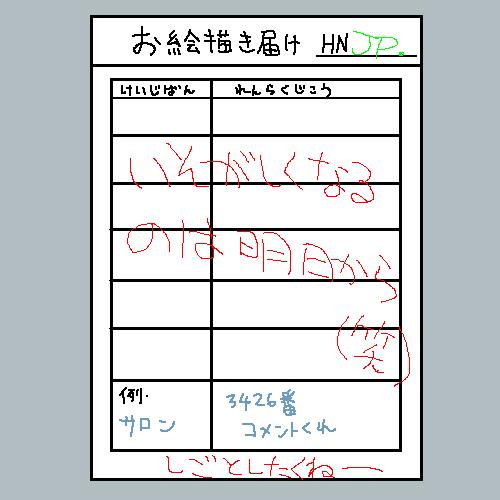 お絵描き届け HN JP.
けいじばん れんらくじこう
いそがしくなる
のは明日から
(笑)
例.
サロン
3426番
コメントくれ
しごとしたくねー